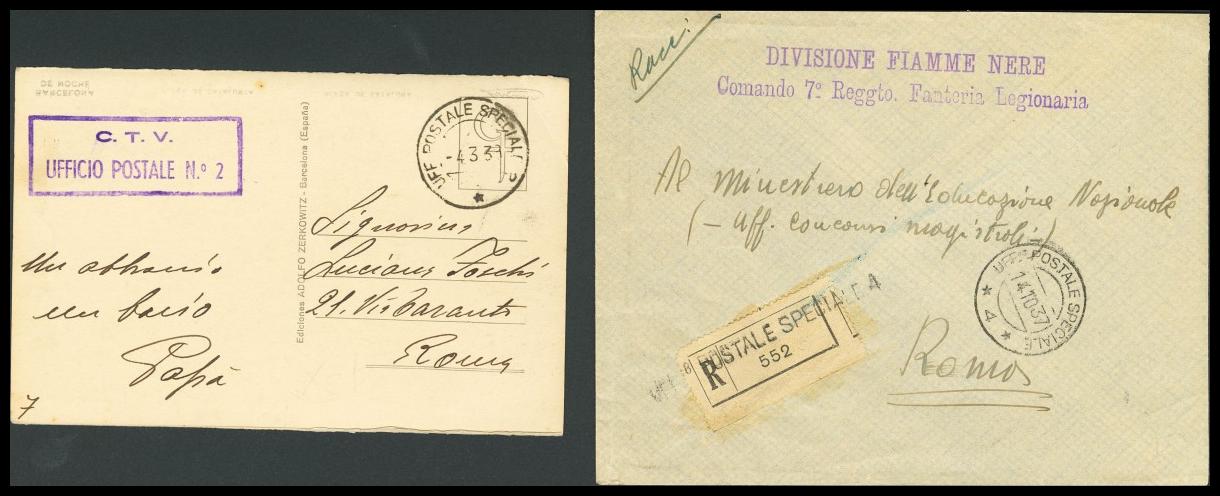 DE NOCHE
BARCELONA
PLAZA DE CATALUÑA
C. T. V.
UFFICIO POSTALE N.º 2
UFF. POSTALE SPECIALE
Ediciones ADOLFO ZERKOWITZ - Barcelona (España)
Signorina
Luciana Foschi
21. Via Taranto
Roma
Un abbraccio
un bacio
Papà
7
Racc:
DIVISIONE FIAMME NERE
Comando 7º Reggto. Fanteria Legionaria
Al Ministero dell'Educazione Nazionale
(- Uff. concorsi magistrali -)
UFF. POSTALE SPECIALE
14.10.37
* 4 *
R
POSTALE SPECIALE 4
552
Roma